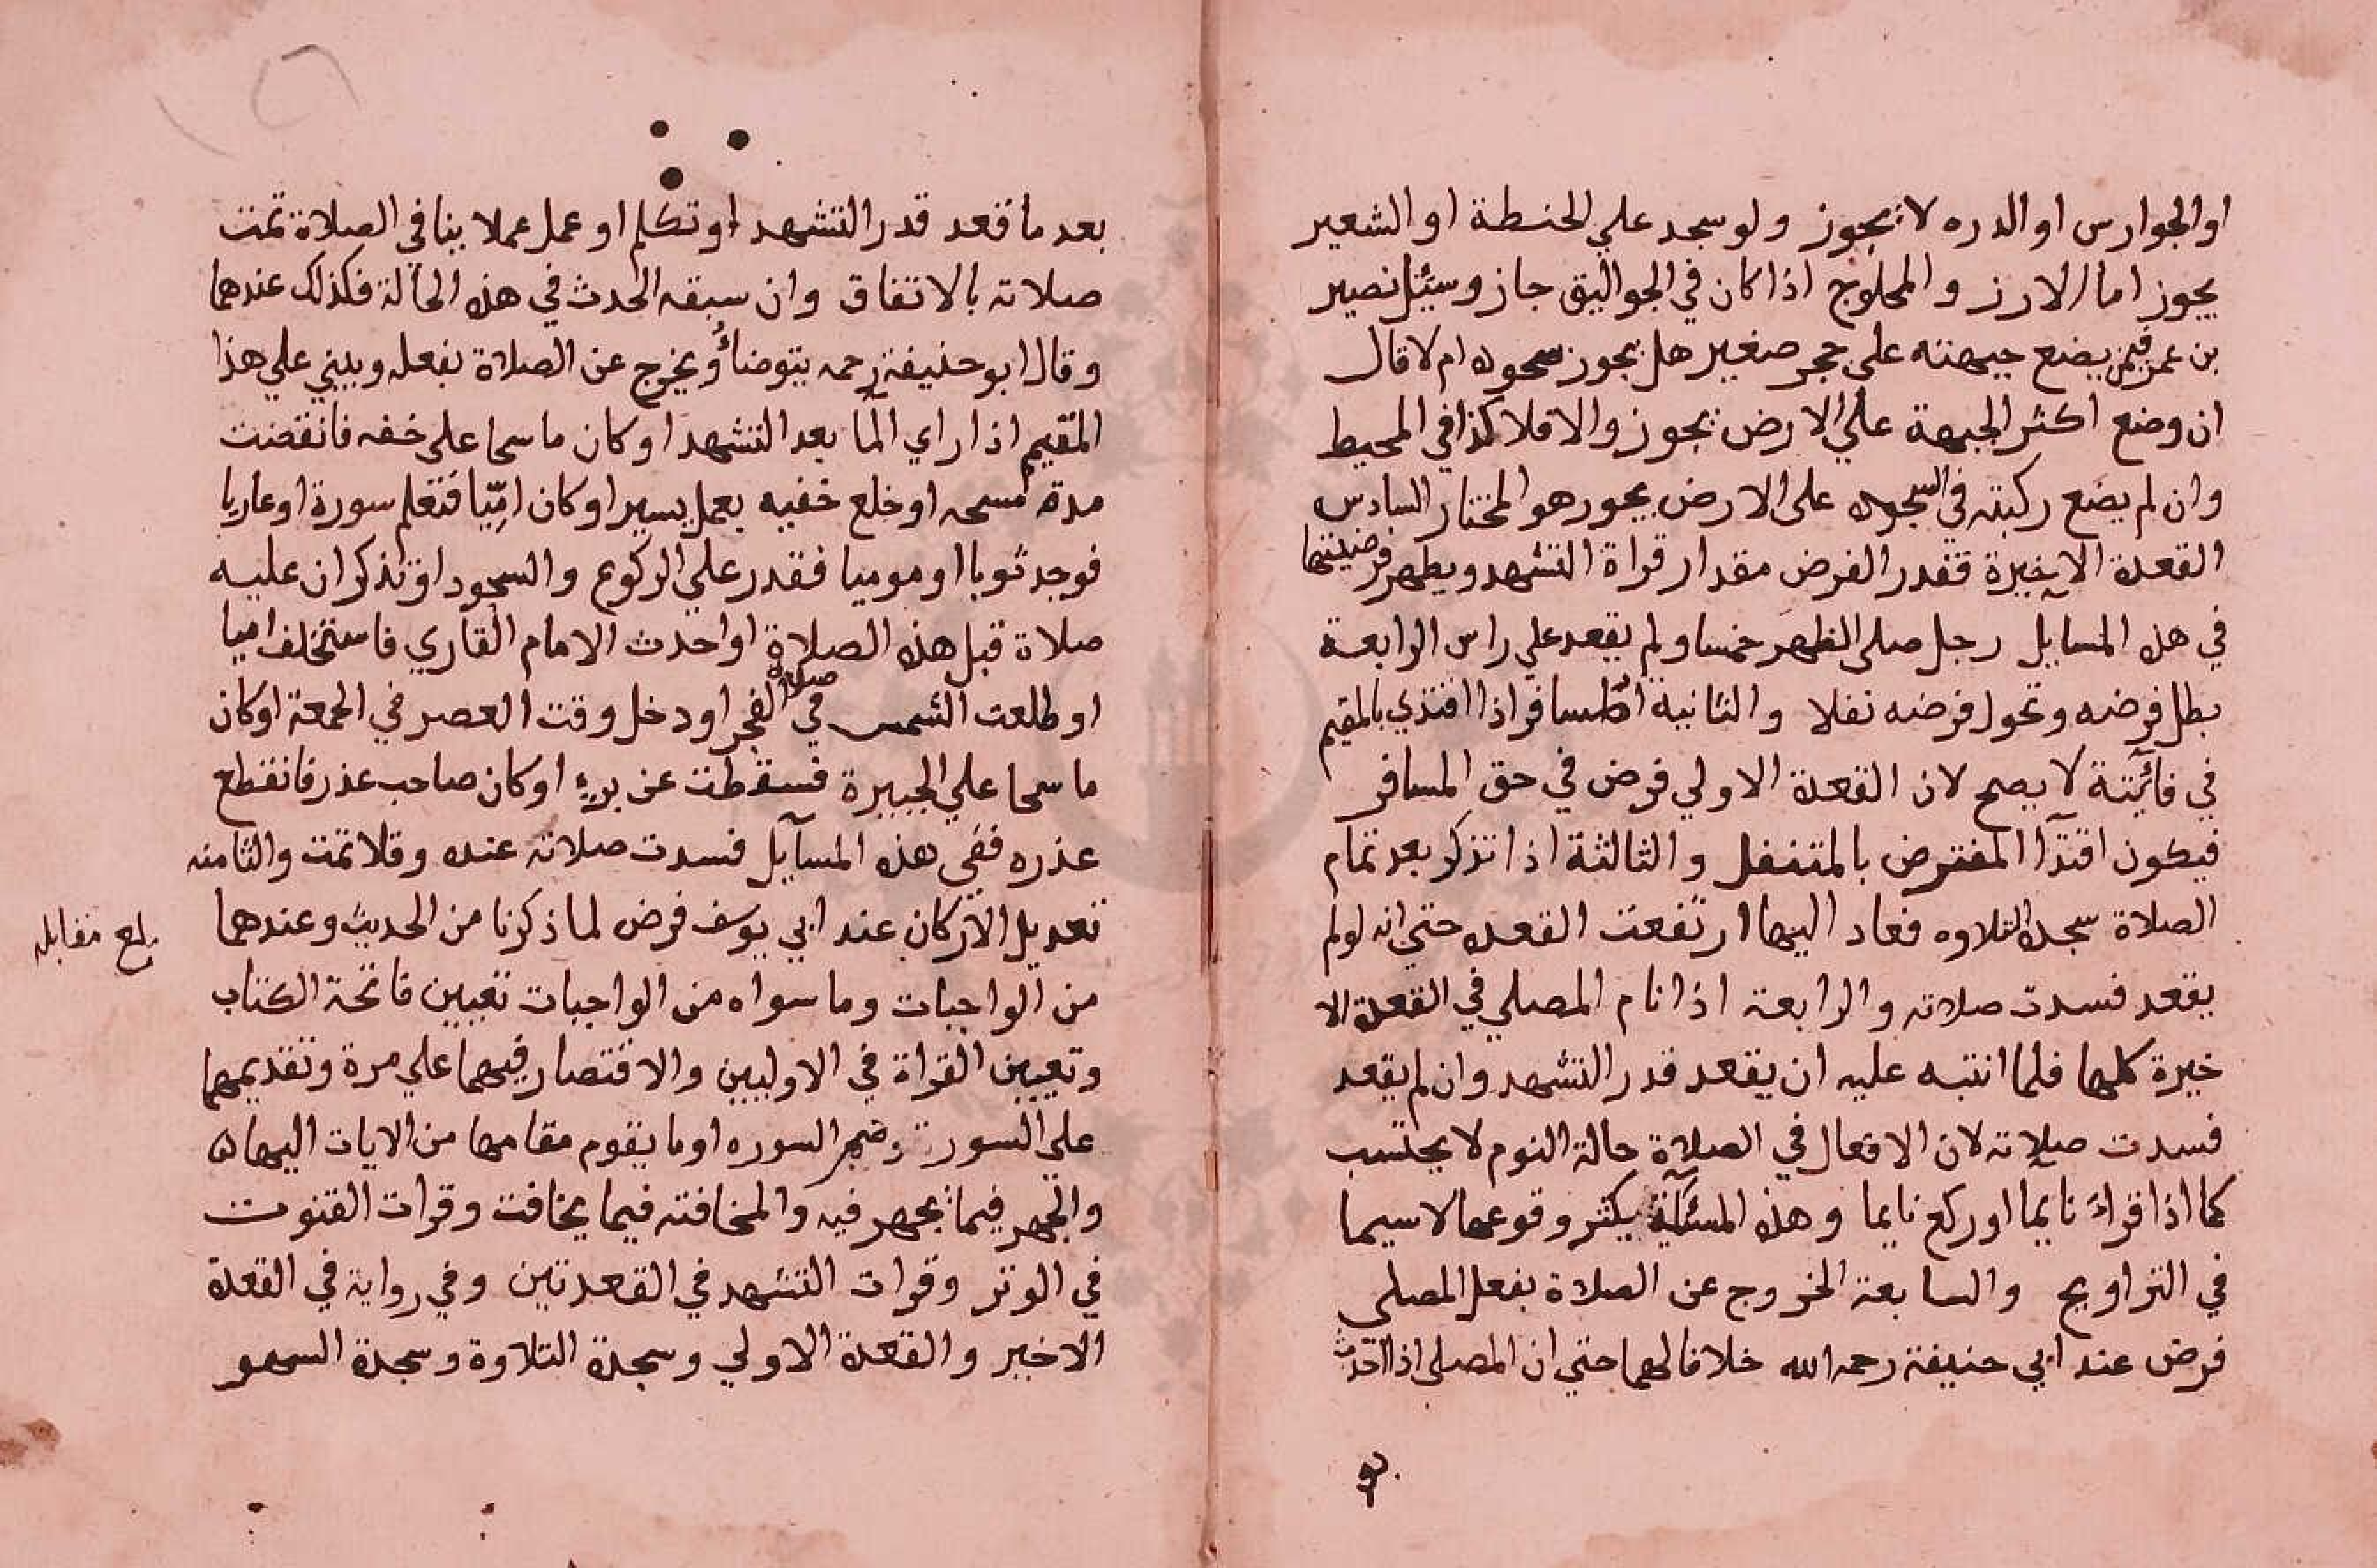 او الجوارس او الدره لا يجوز ولو سجد علي الحنطة او الشعير
يجوز اما الارز و المحلوج اذا كان في الجواليق جاز وسئيل نصير
بن عمر فيمن يضع جبهته على حجر صغير هل يجوز سجوده ام لا قال
ان وضع اكثر الجبهة علي الارض يجوز والا فلا كذا في المحيط
وان لم يضع ركبته في السجود على الارض يجوز هو المختار السادس
القعدة الاخيرة فقدر الفرض مقدار قراة التشهد ويظهر فرضيتها
في هذه المسايل رجل صلى الظهر خمسا ولم يقعد علي راس الرابعة
بطل فرضه وتحول فرضه نفلا والثانية المسافر اذا اقتدي بالمقيم
في فائيتة لا يصح لان القعدة الاولي فرض في حق المسافر
فيكون اقتدآ المفترض بالمتنفل والثالثة اذا تذكر بعد تمام
الصلاة سجدة التلاوه فعاد اليها ارتفعت القعده حتي انه لو لم
يقعد فسدت صلاته والرابعة اذا نام المصلي في القعدة الا
خيرة كلها فلما انتبه عليه ان يقعد قدر التشهد وان لم يقعد
فسدت صلاته لان الافعال في الصلاة حالة النوم لا يحتسب
كما اذا قراء نايما او ركع نايما وهذه المسئلة يكثر وقوعها لا سيما
في التراويح والسابعة الخروج عن الصلاة بفعل المصلي
فرض عند ابي حنيفة رحمه الله خلافا لهما حتي ان المصلى اذا احدث
بعد ما قعد قدر التشهد او تكلم او عمل عملا ينافي الصلاة تمت
صلاته بالاتفاق وان سبقه الحدث في هذه الحالة فكذلك عندهما
وقال ابو حنيفة رحمه يتوضاء ويخرج عن الصلاة بفعله ويبني علي هذا
المقيم اذا راي الما بعد التشهد او كان ماسحا على خفه فانقضت
مدة مسحه او خلع خفيه بعمل يسير او كان اميّا فتعلم سورة او عاريا
فوجد ثوبا او موميا فقدر علي الركوع والسجود او تذكر ان عليه
صلاة قبل هذه الصلاة او احدث الامام القاري فاستخلف اميا
او طلعت الشمس في صلاة الفجر او دخل وقت العصر في الجمعة او كان
ماسحا علي الجبيرة فسقطت عن برء او كان صاحب عذر فانقطع
عذره ففي هذه المسآيل فسدت صلاته عنده وقلا تمت والثامنه
تعديل الاركان عند ابي يوسف فرض لما ذكرنا من الحديث وعندهما
بلغ مقابله
من الواجبات وما سواه من الواجبات تعيين فاتحة الكتاب
وتعيين القراة في الاوليين والاقتصار فيهما علي مرة وتقديمهما
على السورة وضم السوره او ما يقوم مقامها من الايات اليها
والجهر فيما يجهر فيه والمخافته فيما يخافت وقرات القنوت
في الوتر وقرات التشهد في القعدتين وفي رواية في القعدة
الاخير والقعدة الاولي وسجدة التلاوة وسجدة السهو